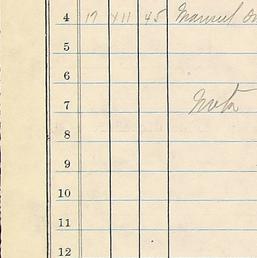 4 17 XII 45 Manuel
5
6
7 Nota
8
9
10
11
12